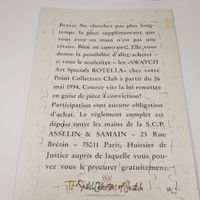 Bravo! Ne cherchez pas plus long-
temps, la pièce supplémentaire que
vous avez en main n'est pas une
erreur. Bien au contraire! Elle vous
donne la possibilité d'aller acheter -
si vous le souhaitez - les «SWATCH
Art Specials ROTELLA» chez votre
Point Collectors Club à partir du 26
mai 1994. Courez site la lui remettre
en guise de pièce à conviction!
Participation sans aucune obligation
d'achat. Le règlement complet est
déposé entre les mains de la S.C.P.
ASSELIN & SAMAIN - 23 Rue
Brézin - 75011 Paris, Huissier de
Justice auprès de laquelle vous pou-
vez vous le procurer gratuitement.